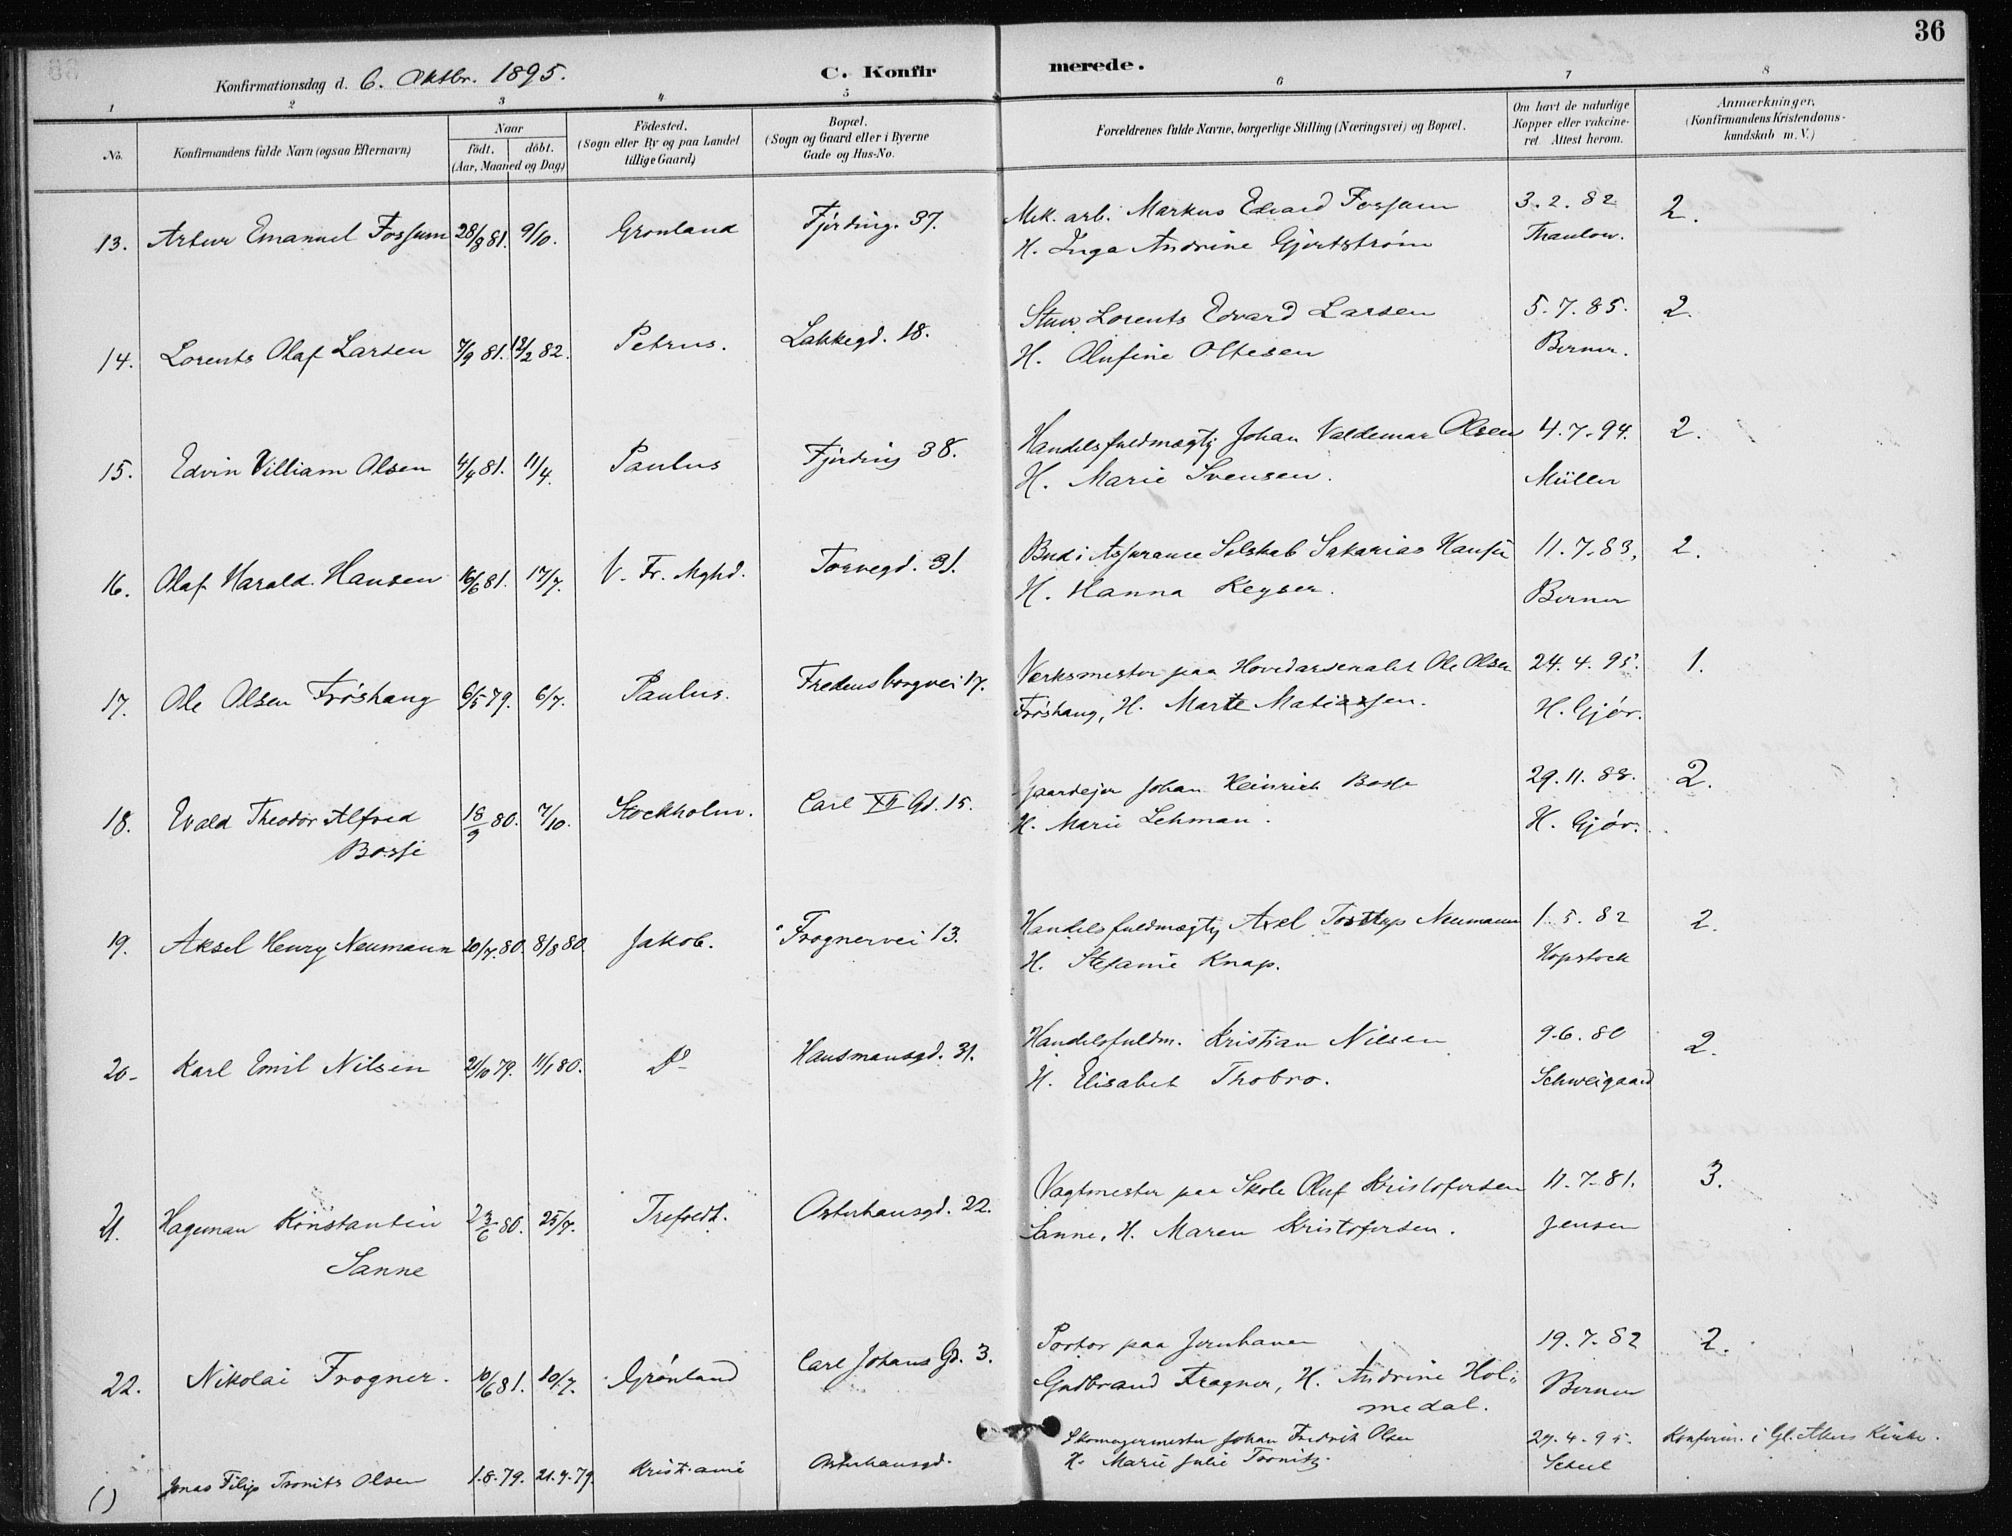 36
Konfirmationsdag d. 6. Oktbr. 1895.
C. Konfirmerede.
1 2 3 4 5 6 7 8
No.
Konfirmandens fulde Navn (ogsaa Efternavn)
Naar
födt. döbt.
(Aar, Maaned og Dag)
Födested.
(Sogn eller By og paa Landet
tillige Gaard)
Bopæl.
(Sogn og Gaard eller i Byerne
Gade og Hus-No.
Forældrenes fulde Navne, borgerlige Stilling (Næringsvei) og Bopæl.
Om havt de naturlige
Kopper eller vakcine-
ret Attest herom.
Anmærkninger,
(Konfirmandens Kristendoms-
kundskab m. V.)
13. Artur Emanuel Fossum 28/8 81. 9/10. Grønland Fjerding. 37. Mek. arb. Markus Edvard Fossum 3.2.82 2.
H. Inga Andrine Gjertstrøm Thaulow.
14. Lorents Olaf Larsen 7/9 81. 12/2 82. Petrus. Lakkegd. 18. Stuv. Lorents Edvard Larsen 5.7.85. 2.
H. Olufine Oltesen Berner.
15. Edvin Villiam Olsen 4/4 81. 11/4. Paulus Fjerding 38. Handelsfuldmægtig Johan Valdemar Olsen 4.7.94. 2.
H. Marie Svensen. Müller
16. Olaf Harald Hansen 16/6 81. 17/7. V. Fr. Mghd. Torvegd. 31. Bud i Assurance Selskab Sakarias Hansen 11.7.83. 2.
H. Hanna Keyser. Berner
17. Ole Olsen Frøshaug 6/5 79. 6/7. Paulus. Fredensborgvei 17. Verksmester paa Hovedarsenalet Ole Olsen 24.4.95. 1.
Frøshaug, H. Marte Matiassen. H. Gjör.
18. Evald Theodor Alfred 18/9 80. 7/10. Stockholm. Carl XII Gd. 15. Gaardejer Johan Heinrich Bosse 29.11.88. 2.
Bosse H. Marie Lehman. H. Gjör.
19. Aksel Henry Neumann 20/7 80. 8/8 80. Jakob. Frognervei 13. Handelsfuldmægtig Axel Tostrup Neumann 1.5.82 2.
H. Stefanie Knap. Hopstock
20. Karl Emil Nilsen 21/10 79. 11/1 80. Do Hausmansgd. 31. Handelsfuldm. Kristian Nilsen 9.6.80 2.
H. Elisabet Thobro. Schweigaard
21. Hageman Konstantin 23/6 80. 25/7. Trefoldt. Osterhausgd. 22. Vagtmester paa Skole Oluf Kristofersen 11.7.81. 3.
Sanne Sanne, H. Maren Kristofersen. Jensen
22. Nikolai Frogner. 10/6 81. 10/7. Grønland Carl Johans Gd. 3. Portor paa Jernbanen 19.7.82 2.
Gudbrand Frogner, H. Andrine Hol-
medal. Berner
() Jonas Filip Tronits Olsen 1.8.79. 21.9.79. Kristiania Osterhausgd. Skomagermester Johan Fredrik Olsen 27.4.95. Konfirm. i Gl. Akers Kirke.
H. Marie Julie Tronitz. Scheel